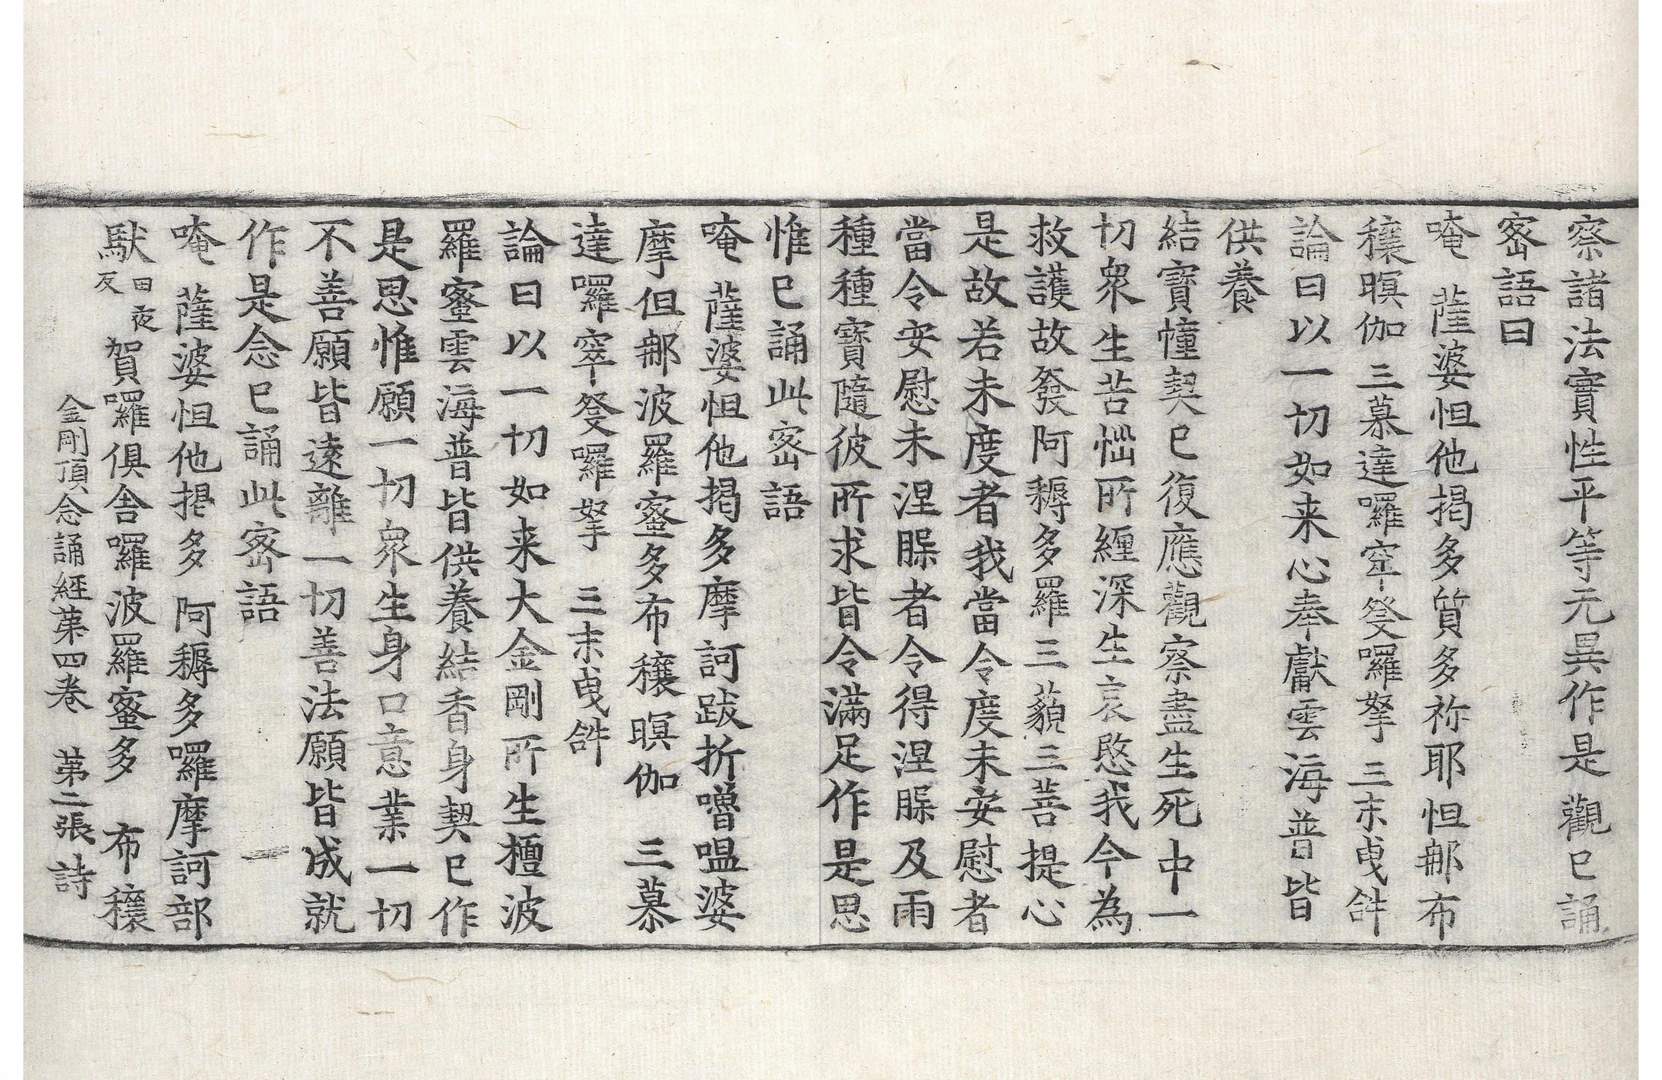 察諸法實性平等无異作是觀已誦
密語曰
唵 薩婆怛他揭多質多祢耶怛那布
穰暝伽 三慕達囉窣發囉拏 三末曳𤙖
論曰以一切如来心奉獻雲海普皆
供養
結寶幢契已復應觀察盡生死中一
切衆生苦惱所纏深生哀愍我今為
救護故發阿耨多羅三藐三菩提心
是故若未度者我當令度未安慰者
當令安慰未涅槃者令得涅槃及雨
種種寶隨彼所求皆令滿足作是思
惟已誦此密語
唵 薩婆怛他揭多摩訶跋折嚕嗢婆
摩但那波羅蜜多布穰暝伽 三慕
達囉窣發囉拏 三末曳𤙖
論曰以一切如来大金剛所生檀波
羅蜜雲海普皆供養結香身契已作
是思惟願一切衆生身口意業一切
不善願皆遠離一切善法願皆成就
作是念已誦此密語
唵 薩婆怛他揭多 阿耨多囉摩訶部
馱田夜反賀囉俱舍囉波羅蜜多 布穰
金剛頂念誦経苐四卷 苐二張 詩